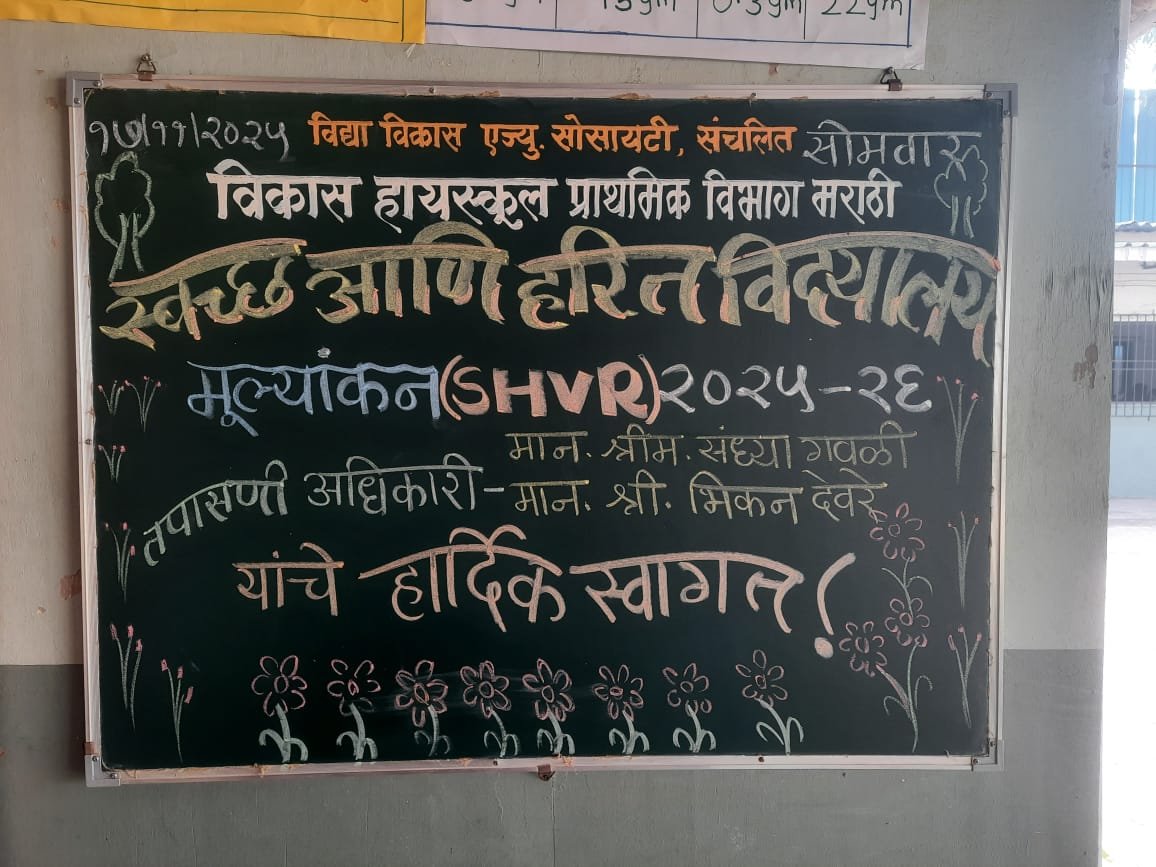 13gm 0.3gm 22gm
१७/११/२०२५ विद्या विकास एज्यु. सोसायटी, संचलित सोमवार
विकास हायस्कूल प्राथमिक विभाग मराठी
स्वच्छ आणि हरित विद्यालय
मूल्यांकन (SHVR) २०२५-२६
मान. श्रीम. संध्या गवळी
तपासणी अधिकारी - मान. श्री. भिकन देवरे
यांचे हार्दिक स्वागत!